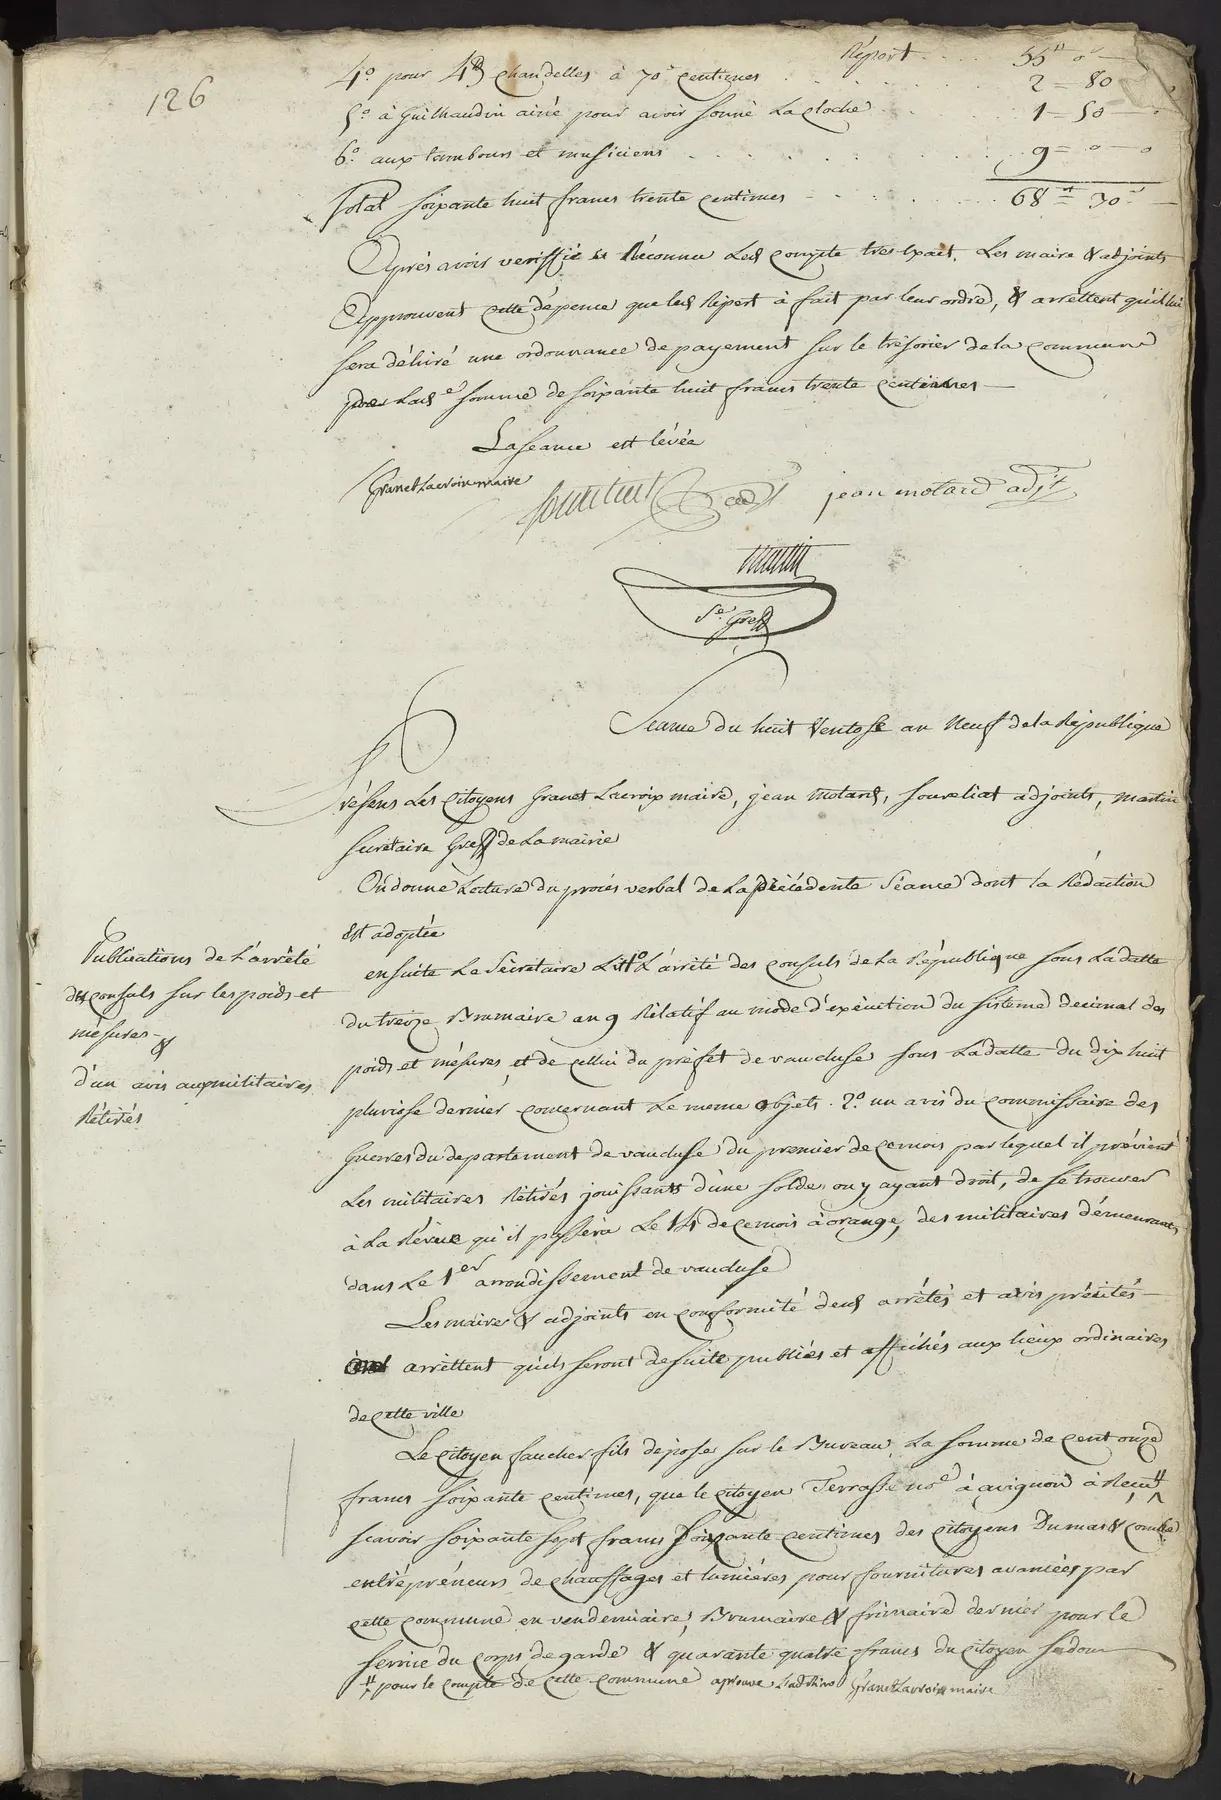 126
Réport .... 55tt 0s —
4.º pour 4 chandelles à 70.s centimes .... 2 = 80
5.º à Guilhaudin ainé pour avoir sonné La cloche .... 1 = 50 —
6.º aux tambours et musiciens .... 9 = 0 — 0
Total soixante huit francs trente centimes .... 68tt = 30s —
Après avoir veriffié et Réconnu Led compte tres Exact. Les maire & adjoints
Approuvent cette dépence que led Ripert à fait par leur ordre, & arrêttent qu'il lui
sera délivré une ordonnance de payement sur le trésorier de la commune
pour Lade somme de soixante huit francs trente centimes —
La seance est levée
Granet Lacroix maire
jean motard adjt
martin
Sre. Greff
Seance du huit Ventose an Neuf de la République
Présens Les Citoyens Granet Lacroix maire, jean motard, souveliat adjoints, martin
sécrétaire Greff de La mairie
On donne Lecture du procés verbal de La précédente Séance dont la Rédaction
est adoptée
Publications de L'arrêté
des consuls sur les poids et
mésures —
&
d'un avis aux militaires
Rétirés
ensuite Le Sécretaire Lit 1º L'arrêté des consuls de La République sous La datte
du treize Brumaire an 9 Rélatif au mode d'exécution du sisteme decimal des
poids et mésures, et de cellui du préfet de vaucluse sous La datte du dix huit
pluviose dernier concernant Le meme objets. 2.º un avis du commissaire des
Guerres du departement de vaucluse du premier de ce mois par lequel il prévient
Les militaires Rétirés jouissants d'une solde ou y ayant droit, de se trouver
à La Révue qu'il passera Le 14 de ce mois à orange, des militaires démeurants
dans Le 1er arrondissement de vaucluse
Les maire & adjoints en conformité desd arrêtés et avis précités —
arrêttent qu'ils seront de suite publiés et affichés aux lieux ordinaires
de cette ville
Le citoyen faucher fils depose sur le Bureau La somme de cent onze
francs soixante centimes, que le citoyen Terrasse nore à avignon à Reçu
scavoir soixante sept francs soixante centimes des citoyens Dumas &
entrépréneurs de chauffages et lumiéres pour fournitures avancées par
cette commune en vendemiaire, Brumaire & frimaire dernier pour le
service du corps de garde & quarante quatre francs du citoyen
pour le compte de cette commune aprouvé Granet Lacroix maire